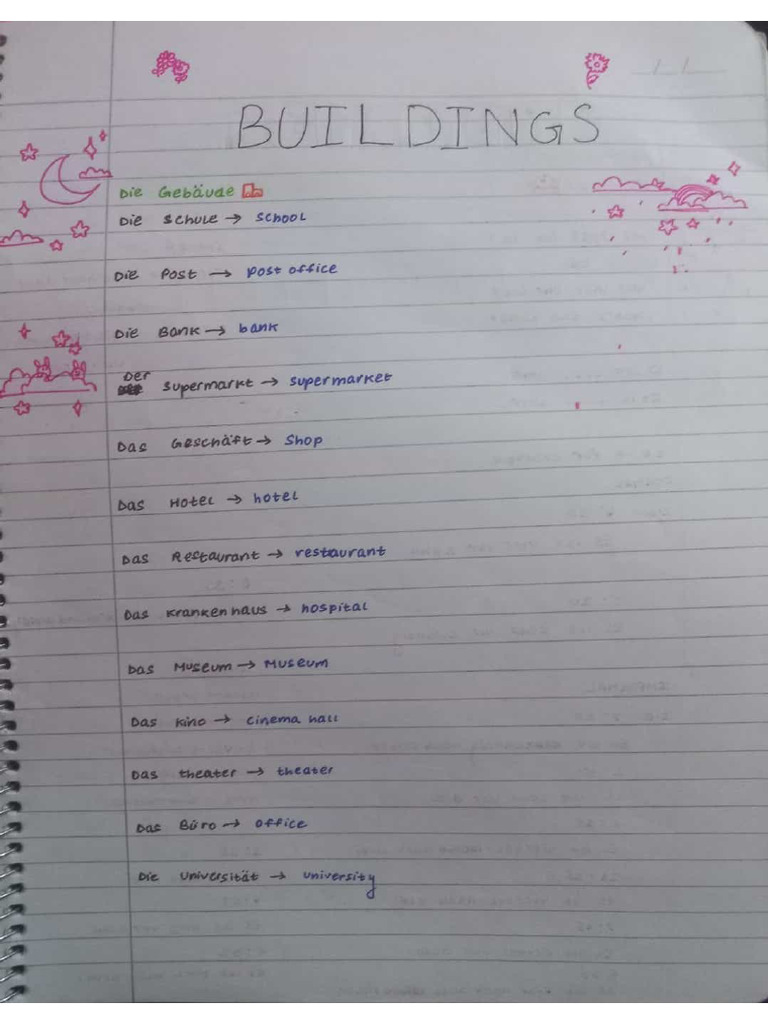 BUILDINGS
Die Gebäude
Die Schule → School
Die Post → post office
Die Bank → bank
Der Supermarkt → supermarket
Das Geschäft → Shop
Das Hotel → hotel
Das Restaurant → restaurant
Das Krankenhaus → hospital
Das Museum → Museum
Das Kino → cinema hall
Das theater → theater
Das Büro → office
Die Universität → university